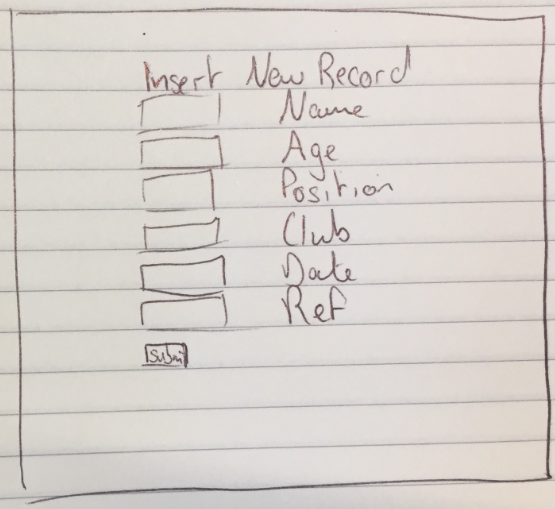 Insert New Record
Name
Age
Position
Club
Date
Ref
Submit